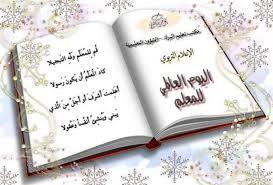 مكتب تعليم الشؤون التعليمية
الإعلام التربوي
اليوم العالمي
للمعلم
قم للمعلم وفه التبجيلا
كاد المعلم أن يكون رسولا
أعلمت أشرف أو أجل من الذي
يبني وينشئ أنفساً وعقولا